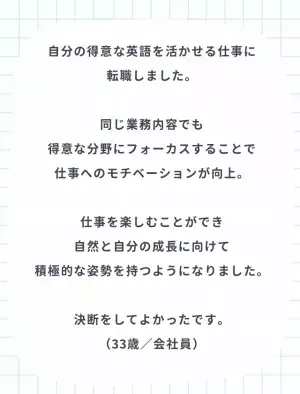 自分の得意な英語を活かせる仕事に
転職しました。
同じ業務内容でも
得意な分野にフォーカスすることで
仕事へのモチベーションが向上。
仕事を楽しむことができ
自然と自分の成長に向けて
積極的な姿勢を持つようになりました。
決断をしてよかったです。
（33歳／会社員）